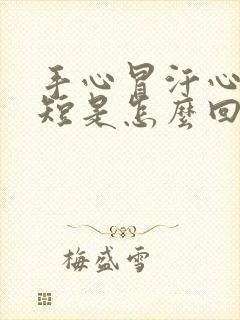 手心冒汗心
短是怎麼回
梅盛雪